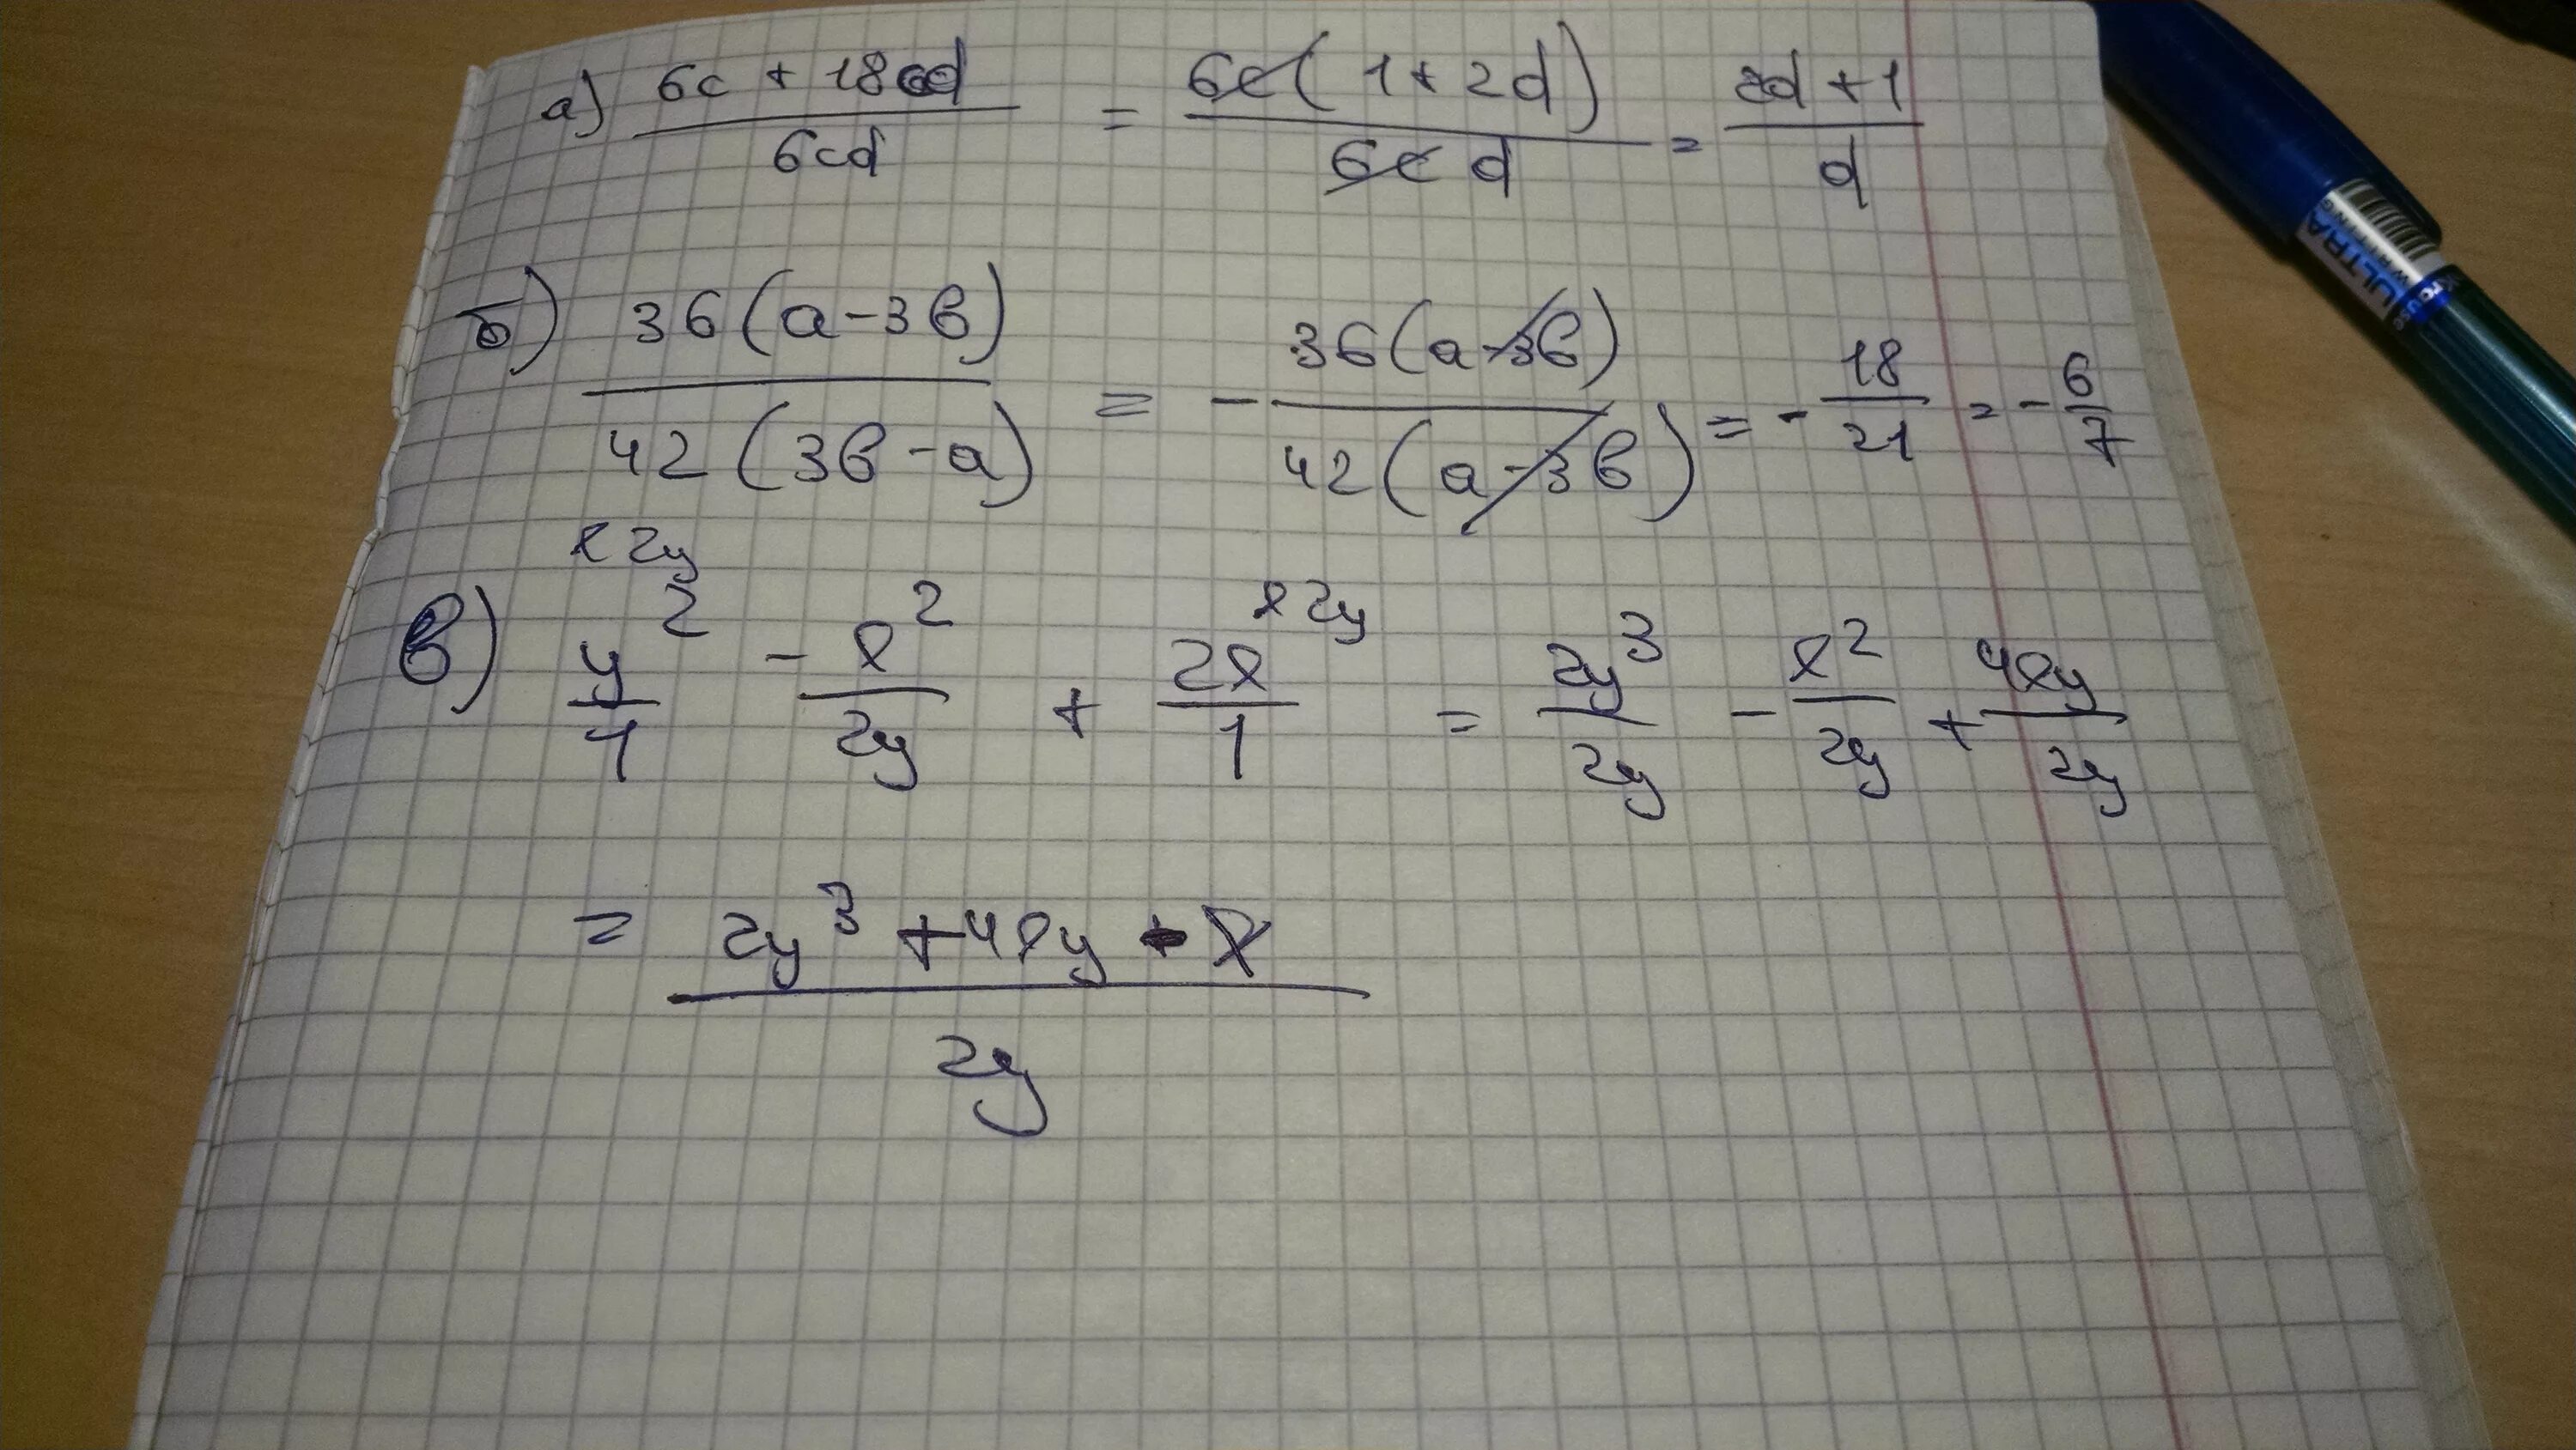 а) (6c + 18cd)/(6cd) = (6c(1+2d))/(6c d) = (2d+1)/d
б) (36(a-3b))/(42(3b-a)) = -(36(a-3b))/(42(a-3b)) = -18/21 = -6/7
x2y x2y
в) y²/1 - x²/2y + 2x/1 = 2y³/2y - x²/2y + 4xy/2y
= (2y³ + 4xy - x)/2y
ULTRA
WRITING